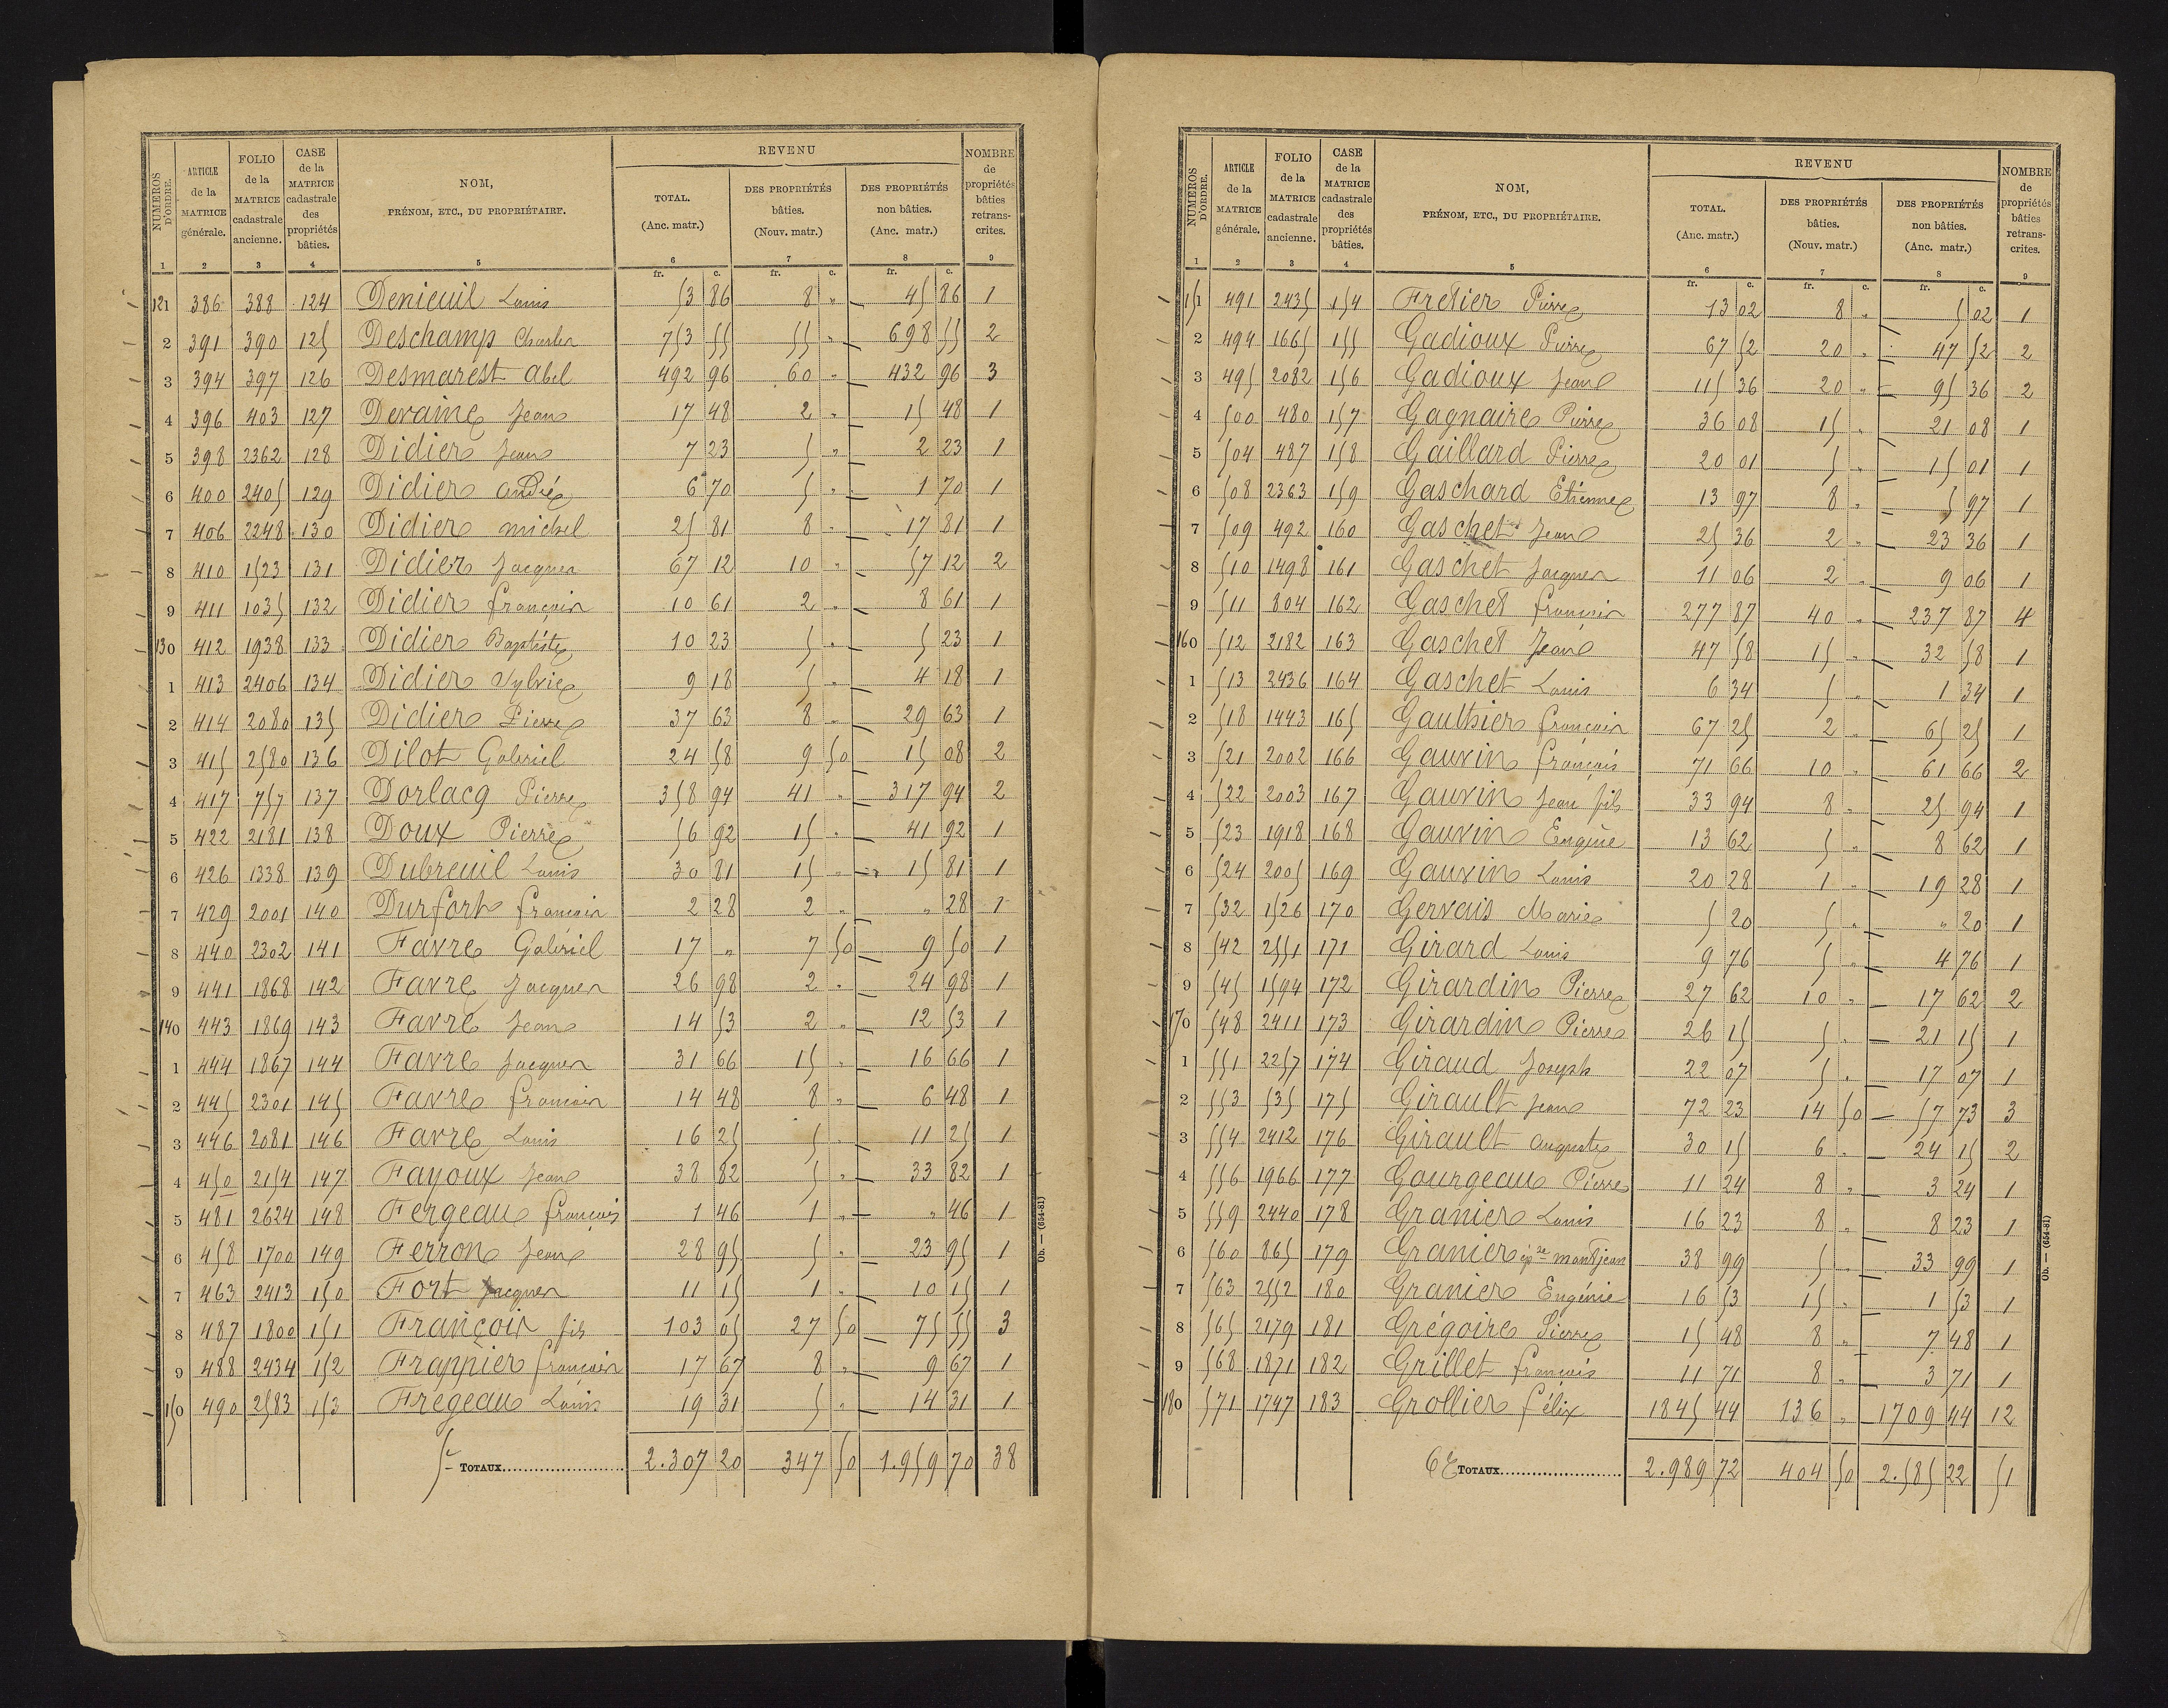 NUMÉROS D'ORDRE. | ARTICLE de la MATRICE générale. | FOLIO de la MATRICE cadastrale ancienne. | CASE de la MATRICE cadastrale des propriétés bâties. | NOM, PRÉNOM, ETC., DU PROPRIÉTAIRE. | REVENU TOTAL. (Anc. matr.) | DES PROPRIÉTÉS bâties. (Nouv. matr.) | DES PROPRIÉTÉS non bâties. (Anc. matr.) | NOMBRE de propriétés bâties retranscrites.
1 | 2 | 3 | 4 | 5 | 6 | 7 | 8 | 9
fr. c. | fr. c. | fr. c.
121 | 386 | 388 | 124 | Denieuil Louis | 53 86 | 8 " | 45 86 | 1
2 | 391 | 390 | 125 | Deschamp Charles | 753 55 | 55 " | 698 55 | 2
3 | 394 | 397 | 126 | Desmarest Abel | 492 96 | 60 " | 432 96 | 3
4 | 396 | 403 | 127 | Devaine Jean | 17 48 | 2 " | 15 48 | 1
5 | 398 | 2362 | 128 | Didier Jean | 7 23 | 5 " | 2 23 | 1
6 | 400 | 2405 | 129 | Didier André | 6 70 | 5 " | 1 70 | 1
7 | 406 | 2248 | 130 | Didier michel | 25 81 | 8 " | 17 81 | 1
8 | 410 | 1523 | 131 | Didier Jacques | 67 12 | 10 " | 57 12 | 2
9 | 411 | 1035 | 132 | Didier françois | 10 61 | 2 " | 8 61 | 1
130 | 412 | 1938 | 133 | Didier Baptiste | 10 23 | 5 " | 5 23 | 1
1 | 413 | 2406 | 134 | Didier Sylvie | 9 18 | 5 " | 4 18 | 1
2 | 414 | 2080 | 135 | Didier Pierre | 37 63 | 8 " | 29 63 | 1
3 | 415 | 2580 | 136 | Dilot Gabriel | 24 58 | 9 50 | 15 08 | 2
4 | 417 | 757 | 137 | Dorlacq Pierre | 358 94 | 41 " | 317 94 | 2
5 | 422 | 2181 | 138 | Doux Pierre | 56 92 | 15 " | 41 92 | 1
6 | 426 | 1338 | 139 | Dubreuil Louis | 30 81 | 15 " | 15 81 | 1
7 | 429 | 2001 | 140 | Durfort françois | 2 28 | 2 " | " 28 | 1
8 | 440 | 2302 | 141 | Favre Gabriel | 17 " | 7 50 | 9 50 | 1
9 | 441 | 1868 | 142 | Favre Jacques | 26 98 | 2 " | 24 98 | 1
140 | 443 | 1869 | 143 | Favre Jean | 14 53 | 2 " | 12 53 | 1
1 | 444 | 1867 | 144 | Favre Jacques | 31 66 | 15 " | 16 66 | 1
2 | 445 | 2301 | 145 | Favre françois | 14 48 | 8 " | 6 48 | 1
3 | 446 | 2081 | 146 | Favre Louis | 16 25 | 5 " | 11 25 | 1
4 | 450 | 2154 | 147 | Fayoux Jean | 38 82 | 5 " | 33 82 | 1
5 | 481 | 2624 | 148 | Fergeau françois | 1 46 | 1 " | " 46 | 1
6 | 458 | 1700 | 149 | Ferron Jean | 28 95 | 5 " | 23 95 | 1
7 | 463 | 2413 | 150 | Fort Jacques | 11 15 | 1 " | 10 15 | 1
8 | 487 | 1800 | 151 | François fils | 103 05 | 27 50 | 75 55 | 3
9 | 488 | 2434 | 152 | Frappier françois | 17 67 | 8 " | 9 67 | 1
150 | 490 | 2583 | 153 | Fregeau Louis | 19 31 | 5 " | 14 31 | 1
5e TOTAUX | 2.307 20 | 347 50 | 1.959 70 | 38
Ob. — (654-81)
NUMÉROS D'ORDRE. | ARTICLE de la MATRICE générale. | FOLIO de la MATRICE cadastrale ancienne. | CASE de la MATRICE cadastrale des propriétés bâties. | NOM, PRÉNOM, ETC., DU PROPRIÉTAIRE. | REVENU TOTAL. (Anc. matr.) | DES PROPRIÉTÉS bâties. (Nouv. matr.) | DES PROPRIÉTÉS non bâties. (Anc. matr.) | NOMBRE de propriétés bâties retranscrites.
1 | 2 | 3 | 4 | 5 | 6 | 7 | 8 | 9
fr. c. | fr. c. | fr. c.
151 | 491 | 2435 | 154 | Fretier Pierre | 13 02 | 8 " | 5 02 | 1
2 | 494 | 1665 | 155 | Gadioux Pierre | 67 52 | 20 " | 47 52 | 2
3 | 495 | 2082 | 156 | Gadioux Jean | 115 36 | 20 " | 95 36 | 2
4 | 500 | 480 | 157 | Gagnaire Pierre | 36 08 | 15 " | 21 08 | 1
5 | 504 | 487 | 158 | Gaillard Pierre | 20 01 | 5 " | 15 01 | 1
6 | 508 | 2363 | 159 | Gaschard Etienne | 13 97 | 8 " | 5 97 | 1
7 | 509 | 492 | 160 | Gaschet Jean | 25 36 | 2 " | 23 36 | 1
8 | 510 | 1498 | 161 | Gaschet Jacques | 11 06 | 2 " | 9 06 | 1
9 | 511 | 804 | 162 | Gaschet françois | 277 87 | 40 " | 237 87 | 4
160 | 512 | 2182 | 163 | Gaschet Jean | 47 58 | 15 " | 32 58 | 1
1 | 513 | 2436 | 164 | Gaschet Louis | 6 34 | 5 " | 1 34 | 1
2 | 518 | 1443 | 165 | Gaulthier françois | 67 25 | 2 " | 65 25 | 1
3 | 521 | 2002 | 166 | Gauvin françois | 71 66 | 10 " | 61 66 | 2
4 | 522 | 2003 | 167 | Gauvin Jean fils | 33 94 | 8 " | 25 94 | 1
5 | 523 | 1918 | 168 | Gauvin Eugène | 13 62 | 5 " | 8 62 | 1
6 | 524 | 2005 | 169 | Gauvin Louis | 20 28 | 1 " | 19 28 | 1
7 | 532 | 1526 | 170 | Gervais Marie | 5 20 | 5 " | " 20 | 1
8 | 542 | 2551 | 171 | Girard Louis | 9 76 | 5 " | 4 76 | 1
9 | 545 | 1594 | 172 | Girardin Pierre | 27 62 | 10 " | 17 62 | 2
170 | 548 | 2411 | 173 | Girardin Pierre | 26 15 | 5 " | 21 15 | 1
1 | 551 | 2257 | 174 | Giraud Joseph | 22 07 | 5 " | 17 07 | 1
2 | 553 | 535 | 175 | Girault Jean | 72 23 | 14 50 | 57 73 | 3
3 | 554 | 2412 | 176 | Girault Auguste | 30 15 | 6 " | 24 15 | 2
4 | 556 | 1966 | 177 | Gourgeau Pierre | 11 24 | 8 " | 3 24 | 1
5 | 559 | 2440 | 178 | Granier Louis | 16 23 | 8 " | 8 23 | 1
6 | 560 | 865 | 179 | Granier épse montjean | 38 99 | 5 " | 33 99 | 1
7 | 563 | 2552 | 180 | Granier Eugénie | 16 53 | 15 " | 1 53 | 1
8 | 565 | 2179 | 181 | Grégoire Pierre | 15 48 | 8 " | 7 48 | 1
9 | 568 | 1871 | 182 | Grillet françois | 11 71 | 8 " | 3 71 | 1
180 | 571 | 1747 | 183 | Grollier félix | 1845 44 | 136 " | 1709 44 | 12
6e TOTAUX | 2.989 72 | 404 50 | 2.585 22 | 51
Ob. — (654-81)